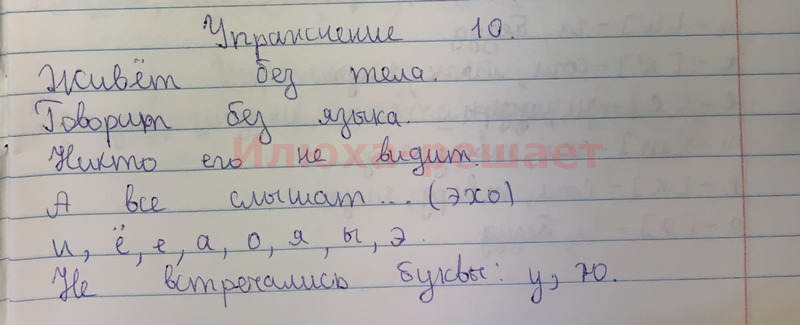 Упражнение 10.
Живёт без тела.
Говорит без языка.
Никто его не видит.
Илюха-решает
А все слышат... (эхо)
и, ё, е, а, о, я, ы, э.
Не встречались буквы: у, ю.